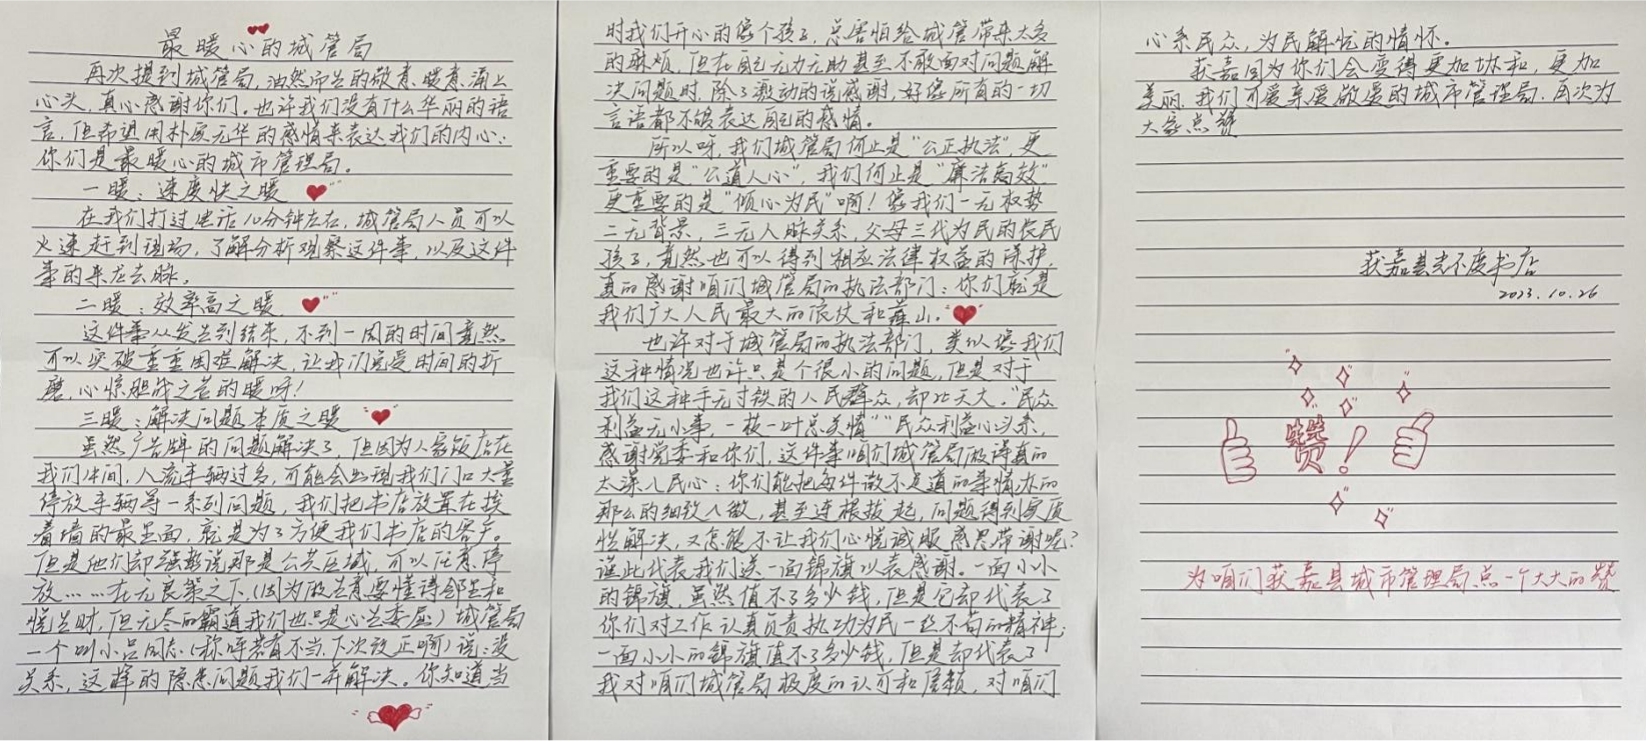 最暖心的城管局
再次提到城管局，油然而生的敬意、暖意、涌上
心头，真心感谢你们。也许我们没有什么华丽的语
言，但希望用朴实无华的感情来表达我们的内心：
你们是最暖心的城市管理局。
一暖：速度快之暖
在我们打过电话10分钟左右，城管局人员可以
火速赶到现场，了解分析观察这件事，以及这件
事的来龙去脉。
二暖：效率高之暖
这件事从发生到结束，不到一周的时间竟然
可以突破重重困难解决，让我们免受时间的折
磨，心惊胆战之苦的暖呀！
三暖：解决问题本质之暖
虽然广告牌的问题解决了，但因为人家饭店在
我们中间，人流车辆过多，可能会出现我们门口大量
停放车辆等一系列问题，我们把书店放置在挨
着墙的最里面，就是为了方便我们书店的客户。
但是他们却强势说那是公共区域，可以任意停
放……在无良策之下，（因为做生意要懂得舍得和
悦生财，但无尽的霸道我们也只是心生委屈）城管局
一个叫小吕同志（称呼若有不当，下次改正啊）说：没
关系，这样的隐患问题我们一并解决。你知道当
时我们开心的像个孩子，总害怕给城管带来太多
的麻烦，但在自己无力无助甚至不敢面对问题解
决问题时，除了激动的说感谢，好像所有的一切
言语都不够表达自己的感情。
所以呀，我们城管局何止是“公正执法”，更
重要的是“公道人心”，我们何止是“廉洁高效”
更重要的是“倾心为民”啊！像我们一无权势
二无背景，三无人脉关系，父母三代为民的农民
孩子，竟然也可以得到相应法律权益的保护，
真的感谢咱们城管局的执法部门：你们就是
我们广大人民最大的依仗和靠山。
也许对于城管局的执法部门，类似像我们
这种情况也许只是个很小的问题，但是对于
我们这种手无寸铁的人民群众，却比天大。“民众
利益无小事，一枝一叶总关情”“民众利益心头系，
感谢党委和你们，这件事咱们城管局做得真的
太深入民心：你们能把每件微不足道的事情办的
那么的细致入微，甚至连根拔起，问题得到实质
性解决，又怎能不让我们心悦诚服感恩带谢呢？
谨此代表我们送一面锦旗以表感谢。一面小小
的锦旗，虽然值不了多少钱，但是它却代表了
你们对工作认真负责执功为民一丝不苟的精神；
一面小小的锦旗值不了多少钱，但是却代表了
我对咱们城管局极度的认可和信赖，对咱们
心系民众，为民解忧的情怀。
获嘉因为你们会变得更加协和，更加
美丽，我们可爱亲爱敬爱的城市管理局，再次为
大家点赞
获嘉县光不度书店
2023.10.26
赞！
为咱们获嘉县城市管理局点一个大大的赞